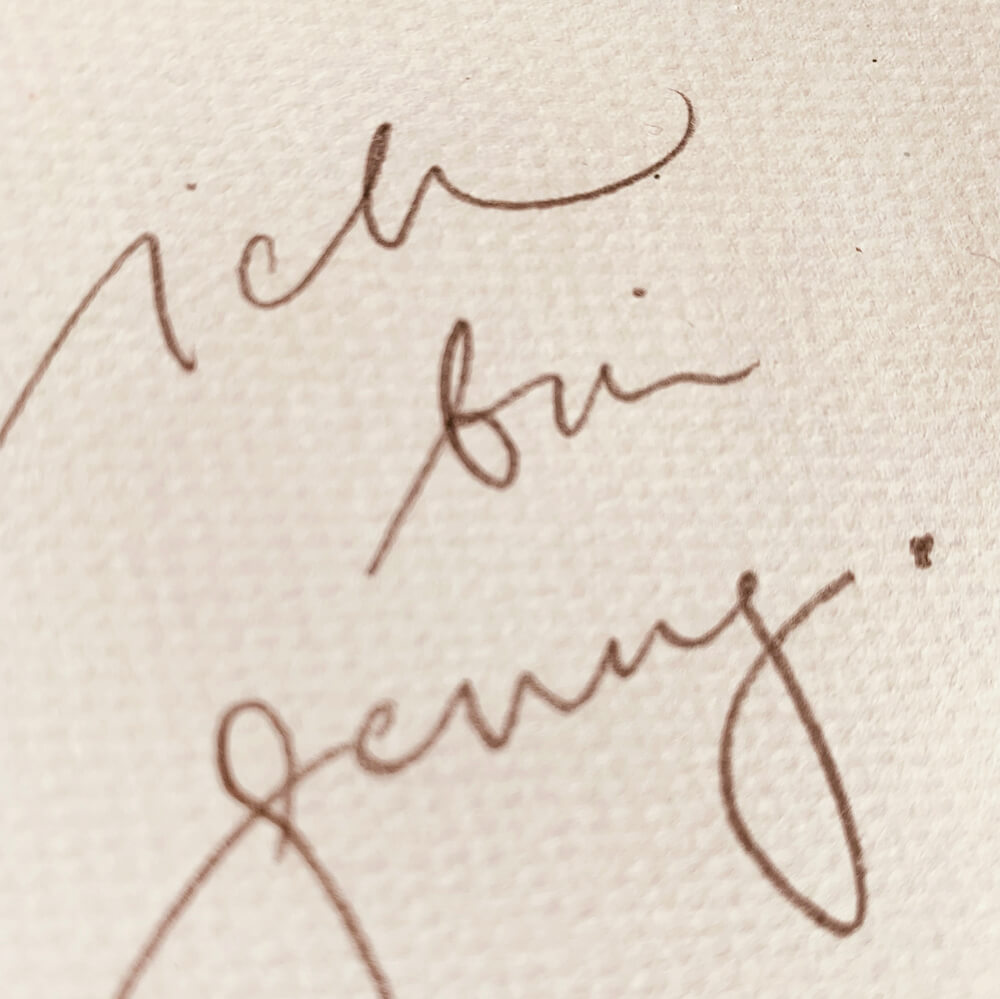 ich
bin
genug.